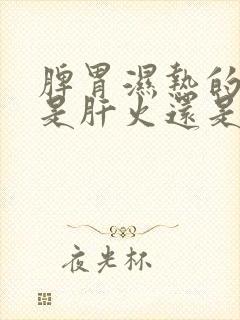 脾胃濕熱的
是肝火還是
夜光杯